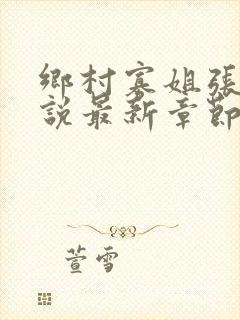 鄉村寡姐張
說最新章節
萱雪